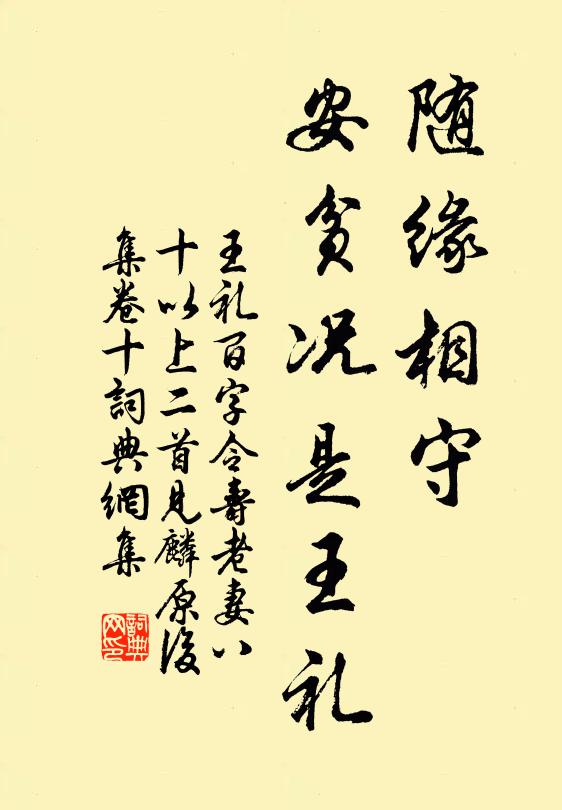 随缘相守
安贫况是王礼
王礼百字令寿老妻八
十以上二首见麟原后
集卷十詞典網集
詞典网印